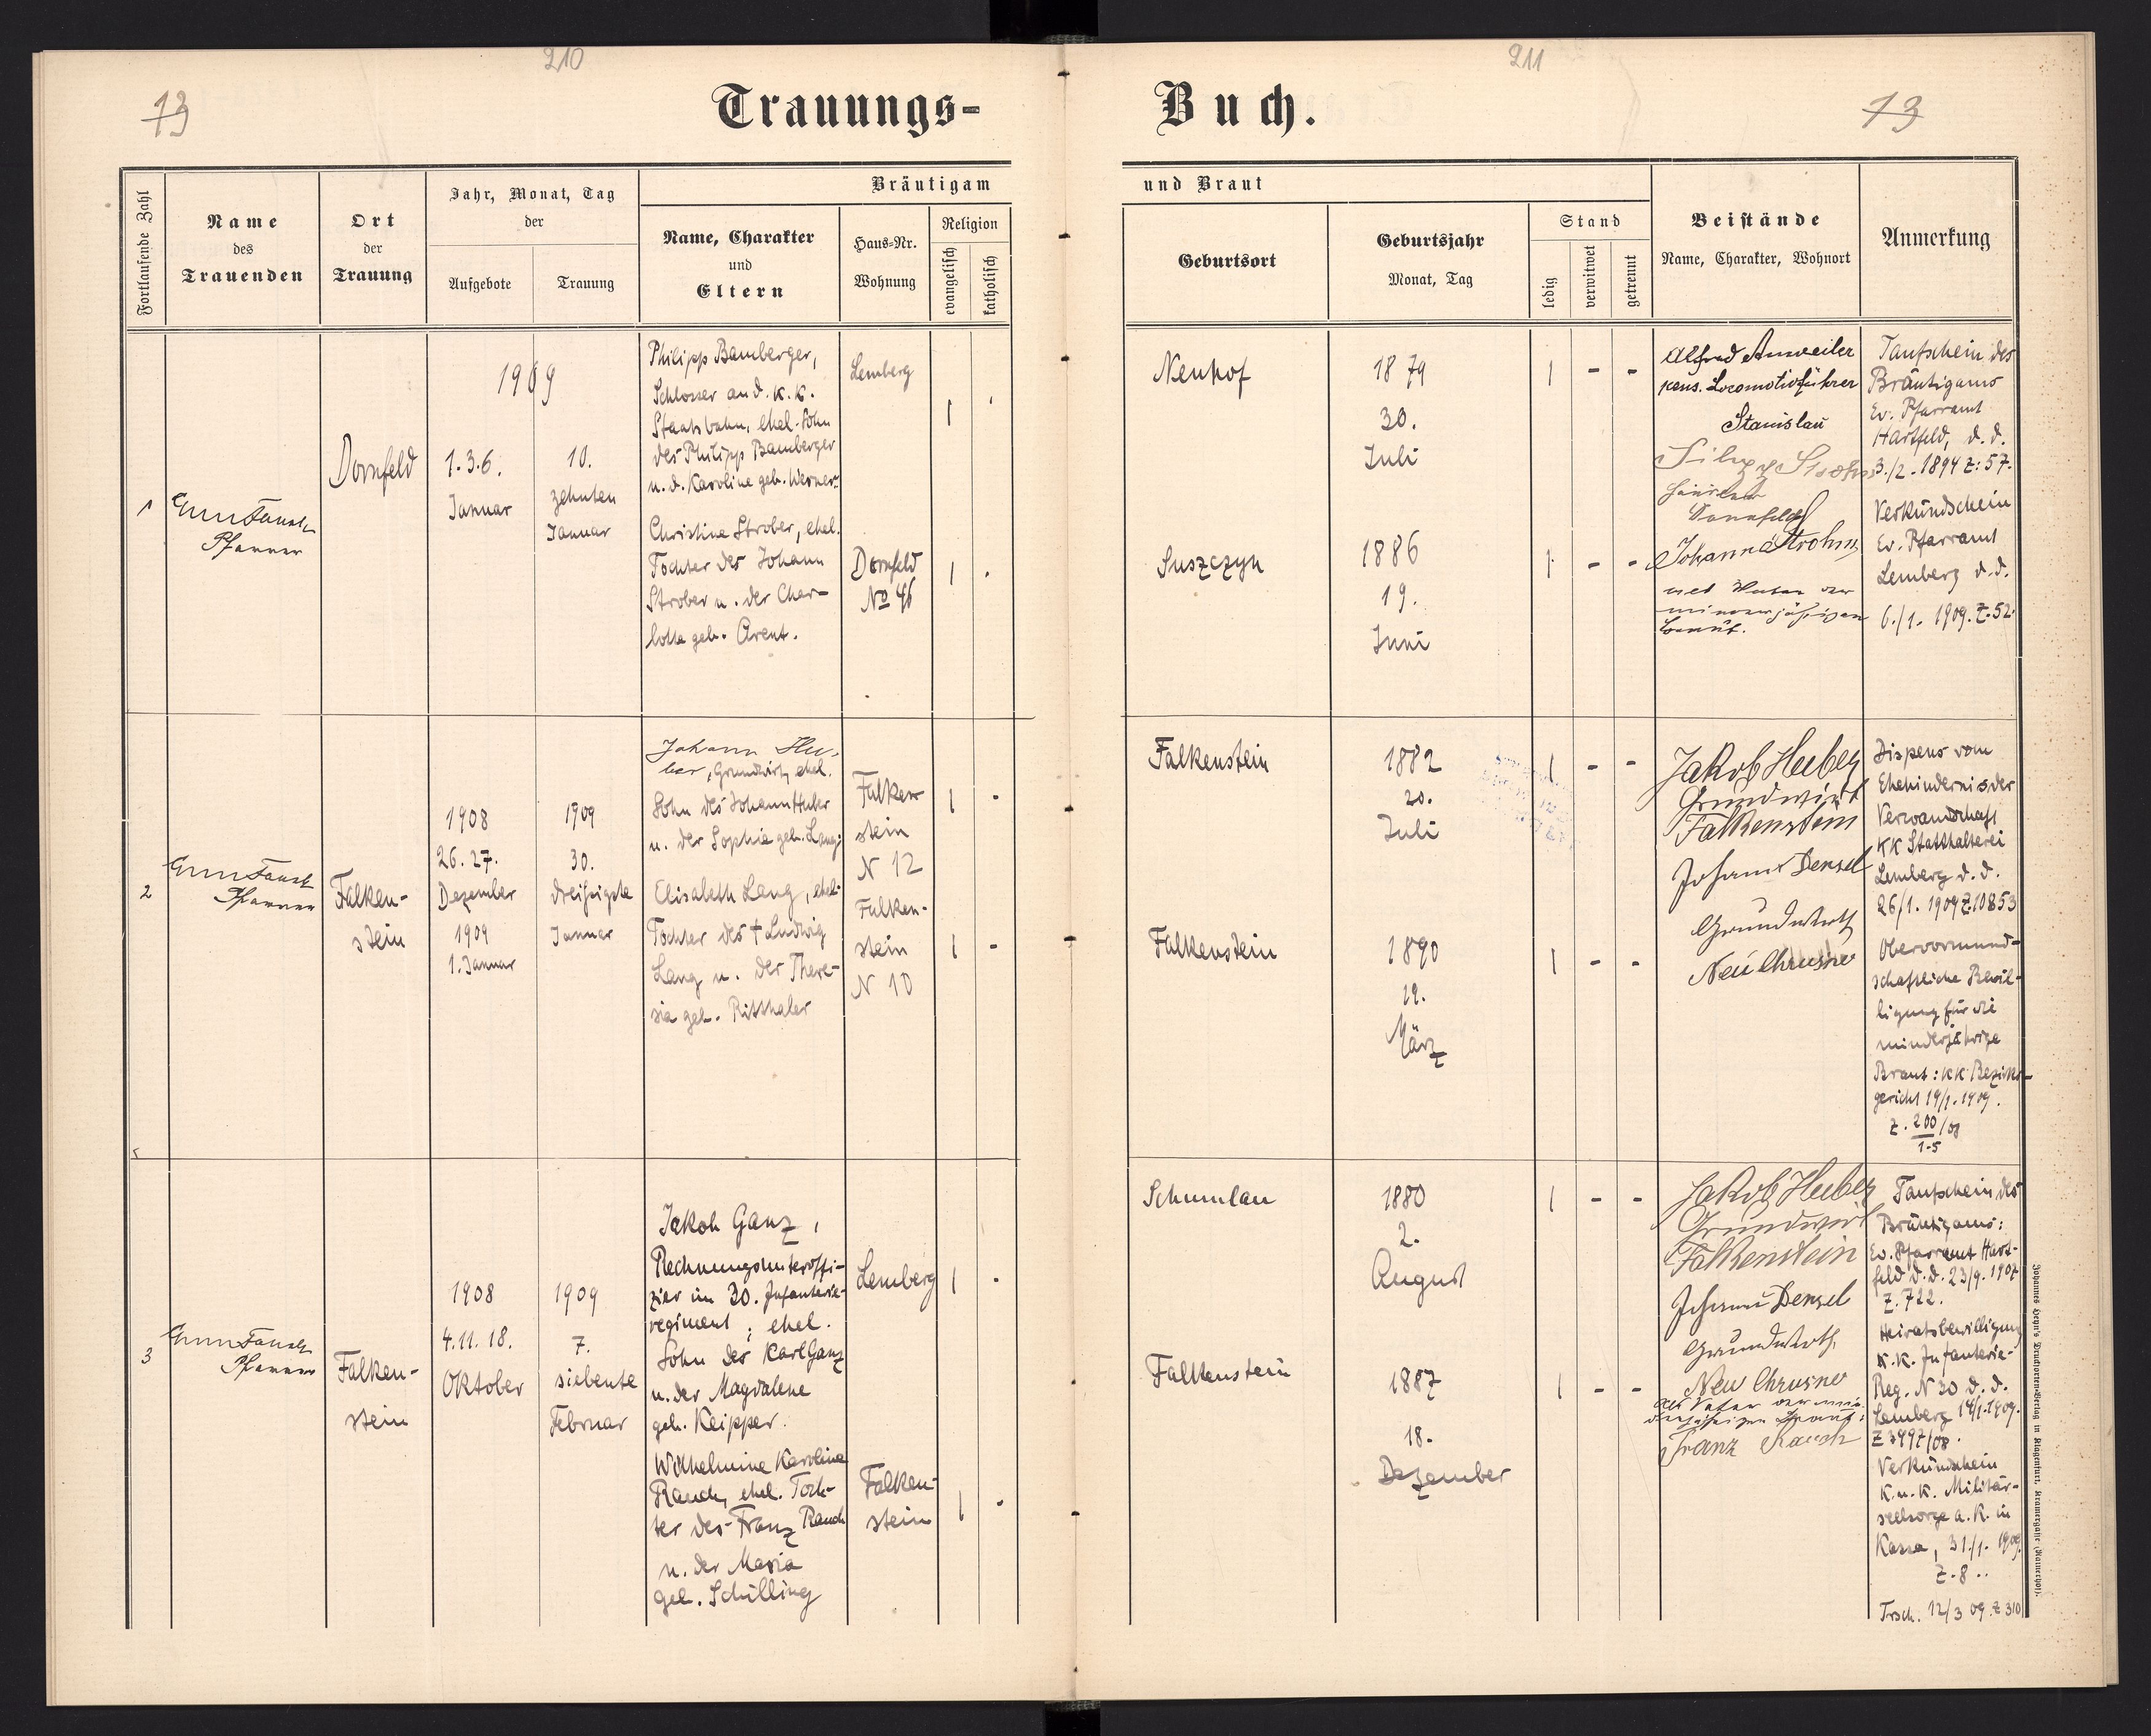 210
211
13
13
Trauungs-
Buch.
Fortlaufende Zahl
Name
des
Trauenden
Ort
der
Trauung
Jahr, Monat, Tag
der
Aufgebote
Trauung
Bräutigam
Name, Charakter
und
Eltern
Haus-Nr.
Wohnung
Religion
evangelisch
katholisch
und Braut
Geburtsort
Geburtsjahr
Monat, Tag
Stand
ledig
verwitwet
getrennt
Beistände
Name, Charakter, Wohnort
Anmerkung
1
Pfarrer
Dornfeld
1909
1. 3. 6.
Januar
10.
zehnten
Januar
Philipp Bamberger,
Schlosser an d. k. k.
Staatsbahn, ehel. Sohn
des Philipp Bamberger
u. d. Karoline geb. Werner.
Christina Strober, ehel.
Tochter des Johann
Strober u. der Char-
lotte geb. Arent.
Lemberg
Dornfeld
No 46
1
1
Neuhof
1879
30.
Juli
1 - -
Suszczyn
1886
19.
Juni
1 - -
Alfred Anweiler
pens. Locomotivführer
Stanislau
Dornfeld
Johann Strohm
Taufschein des
Bräutigams
Ev. Pfarramt
Hartfeld, d. d.
3./2. 1894 Z: 57.
Verkündschein
Ev. Pfarramt
Lemberg d. d.
6./1. 1909. Z. 52.
2
Pfarrer
Falken-
stein
1908
26. 27.
Dezember
1909
1. Januar
1909
30.
dreißigste
Januar
Johann Hu-
ber, Grundwirt, ehel.
Sohn des Johann Huber
u. der Sophia geb. Lang;
Elisabeth Lang, ehel.
Tochter des † Ludwig
Lang u. der There-
sia geb. Ritthaler
Falken-
stein
N 12
Falken-
stein
N 10
1 -
1 -
Falkenstein
1882
20.
Juli
1 - -
Falkenstein
1890
19.
März
1 - -
Jakob Huber
Grundwirt
Falkenstein
Johann Denzel
Grundwirth
Neu Chrusno
Dispens vom
Ehehindernis der
Verwandschaft
KK Statthalterei
Lemberg d. d.
26/1. 1909 Z. 10853
Obervormund-
schaftliche Bewil-
ligung für die
minderjährige
Braut: KK Bezirks-
gericht 19/1. 1909.
Z. 200/08
1-5
3
Pfarrer
Falken-
stein
1908
4. 11. 18.
Oktober
1909
7.
siebente
Februar
Jakob Ganz,
Rechnungsunteroffi-
zier im 30. Infanterie-
regiment; ehel.
Sohn des Karl Ganz
u. der Magdalene
geb. Keipper.
Wilhelmine Karoline
Rauch, ehel. Toch-
ter des Franz Rauch
u. der Maria
geb. Schilling
Lemberg
Falken-
stein
1 -
1 -
Schumlau
1880
2.
August
1 - -
Falkenstein
1887
18.
Dezember
1 - -
Jakob Huber
Grundwirt
Falkenstein
Johann Denzel
Grundwirth,
Neu Chrusno
als Vater der min-
derjährigen Braut:
Franz Rauch
Taufschein des
Bräutigams:
Ev. Pfarramt Hart-
feld d. d. 23/9. 1907
Z. 722.
Heiratsbewilligung
K. K. Infanterie-
Reg. N 30 d. d.
Lemberg 14/1. 1909.
Z 3497/08.
Verkündschein
K. u. K. Militär-
seelsorge a. K. in
Kassa, 31./1. 1909.
Z. 8..
Trsch. 12/3 09. Z 310
Johannes Heyn's Drucksorten-Verlag in Klagenfurt, Kramergasse